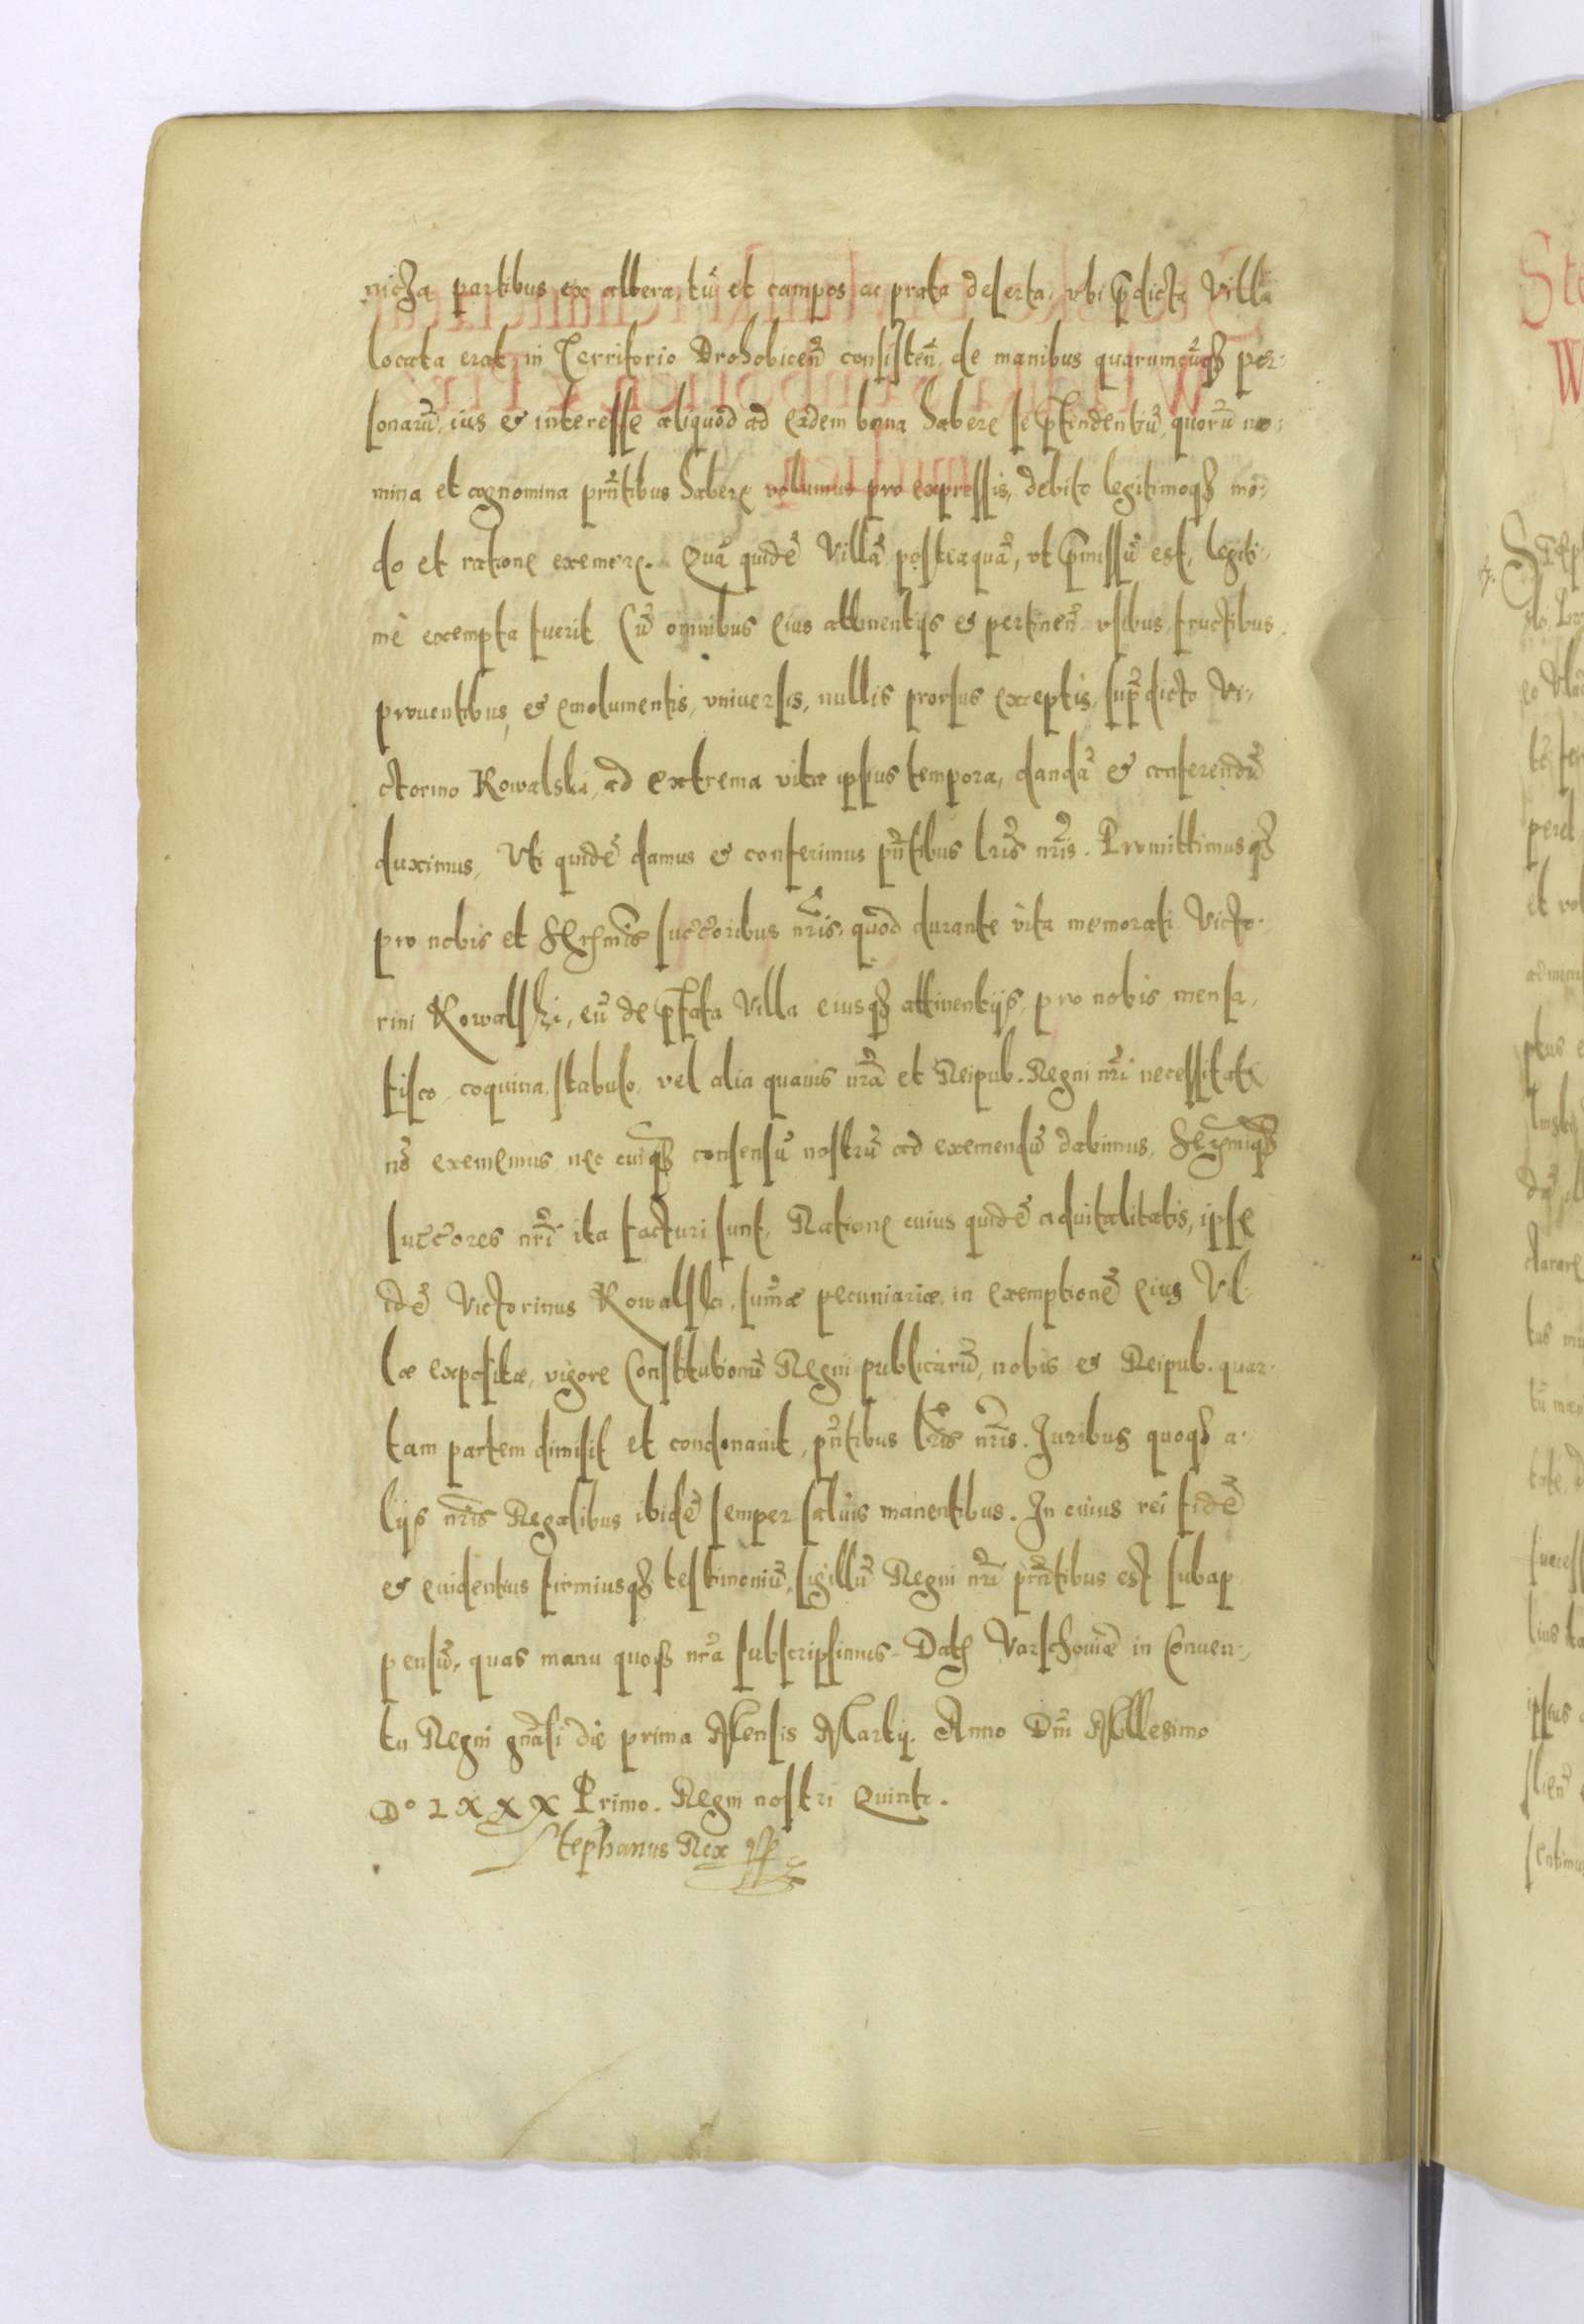 nicża partibus ex altera, tū et campos ac prata deserta, vbi p̄dicta Villa
locata erat in Territorio Drohobiceñ consisteñ, de manibus quarumcūq₃ per-
sonarū, ius & interesse aliquod ad eadem bona habere se p̄tendentiū, quorū no-
mina et cognomina prñtibus habere volumus pro expressis, debito legitimoq₃ mo-
do et ratione eximere. Quā quidē Villā posteaquā, vt p̄missū est, legiti-
mè exempta fuerit, Cū omnibus eius attinentijs & pertineñ vsibus, fructibus
prouentibus, & emolumentis, vniuersis, nullis prorsus exceptis, sup̄dicto Vi-
ctorino Kowalski, ad extrema vitæ ipsius tempora, dandā & conferendā
duximus, Vti quidē damus & conferimus pñtibus lr̄is nr̄is. Promittimusq₃
pro nobis et Serēmis succ̄oribus nr̄is, quod durante vita memorati Victo-
rini Kowalski, eū de p̄fata Villa eiusq₃ attinentijs, pro nobis, mensa,
fisco, coquina, stabulo, vel alia quauis nr̄a et Reipub. Regni nr̄i necessitate
nō eximemus, nec cuiq₃ consensū nostrū ad eximendū dabimus, Serēmiq₃
succ̄ores nr̄i ita facturi sunt, Ratione cuius quidē aduitalitatis, ipse
idē Victorinus Kowalski, sum̄æ pecuniariæ, in exemptionē eius Vil-
læ expositæ, vigore Constitutionū Regni publicarū, nobis & Reipub. quar-
tam partem dimisit et condonauit, pñtibus lr̄is nr̄is. Juribus quoq₃ a-
lijs nr̄is Regalibus ibidē semper saluis manentibus. In cuius rei fidē
& euidentius firmiusq₃ testimoniū, sigillū Regni nr̄i prñtibus est subap
pensū, quas manu quoq₃ nr̄a subscripsimus. Datę Varschouiæ in Conuen-
tu Regni gñali die prima Mensis Martij. Anno Dñi Millesimo
Dº LXXX Primo. Regni nostri Quinto.
Stephanus Rex